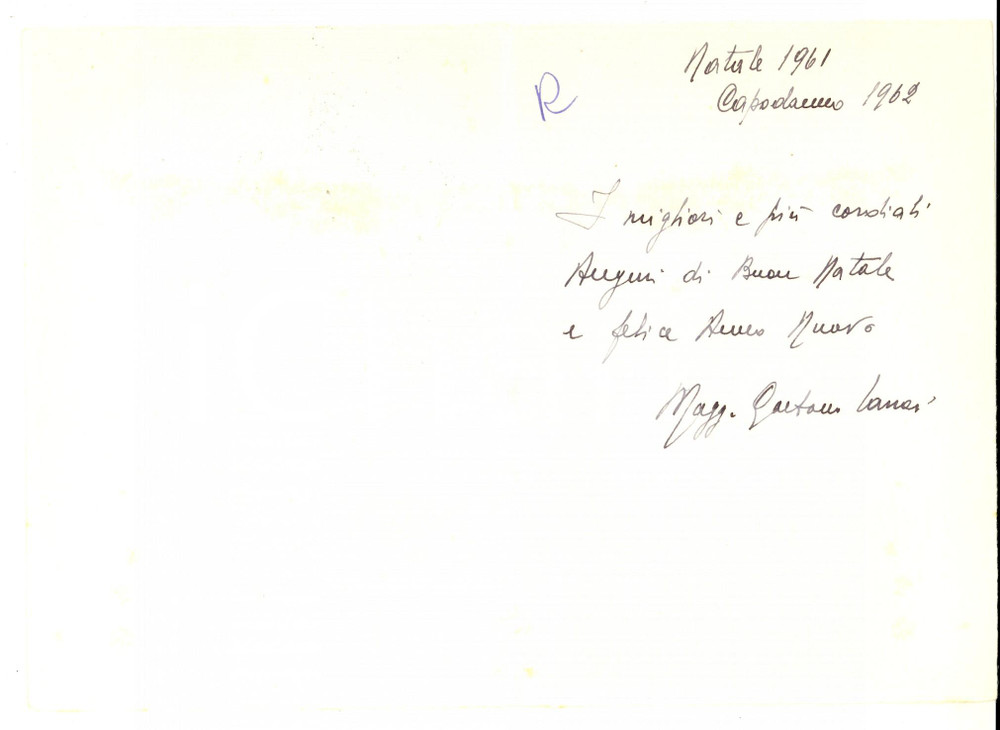 Natale 1961
Capodanno 1962
R
I migliori e più cordiali
Auguri di Buon Natale
e felice Anno Nuovo
Magg. Gaetano